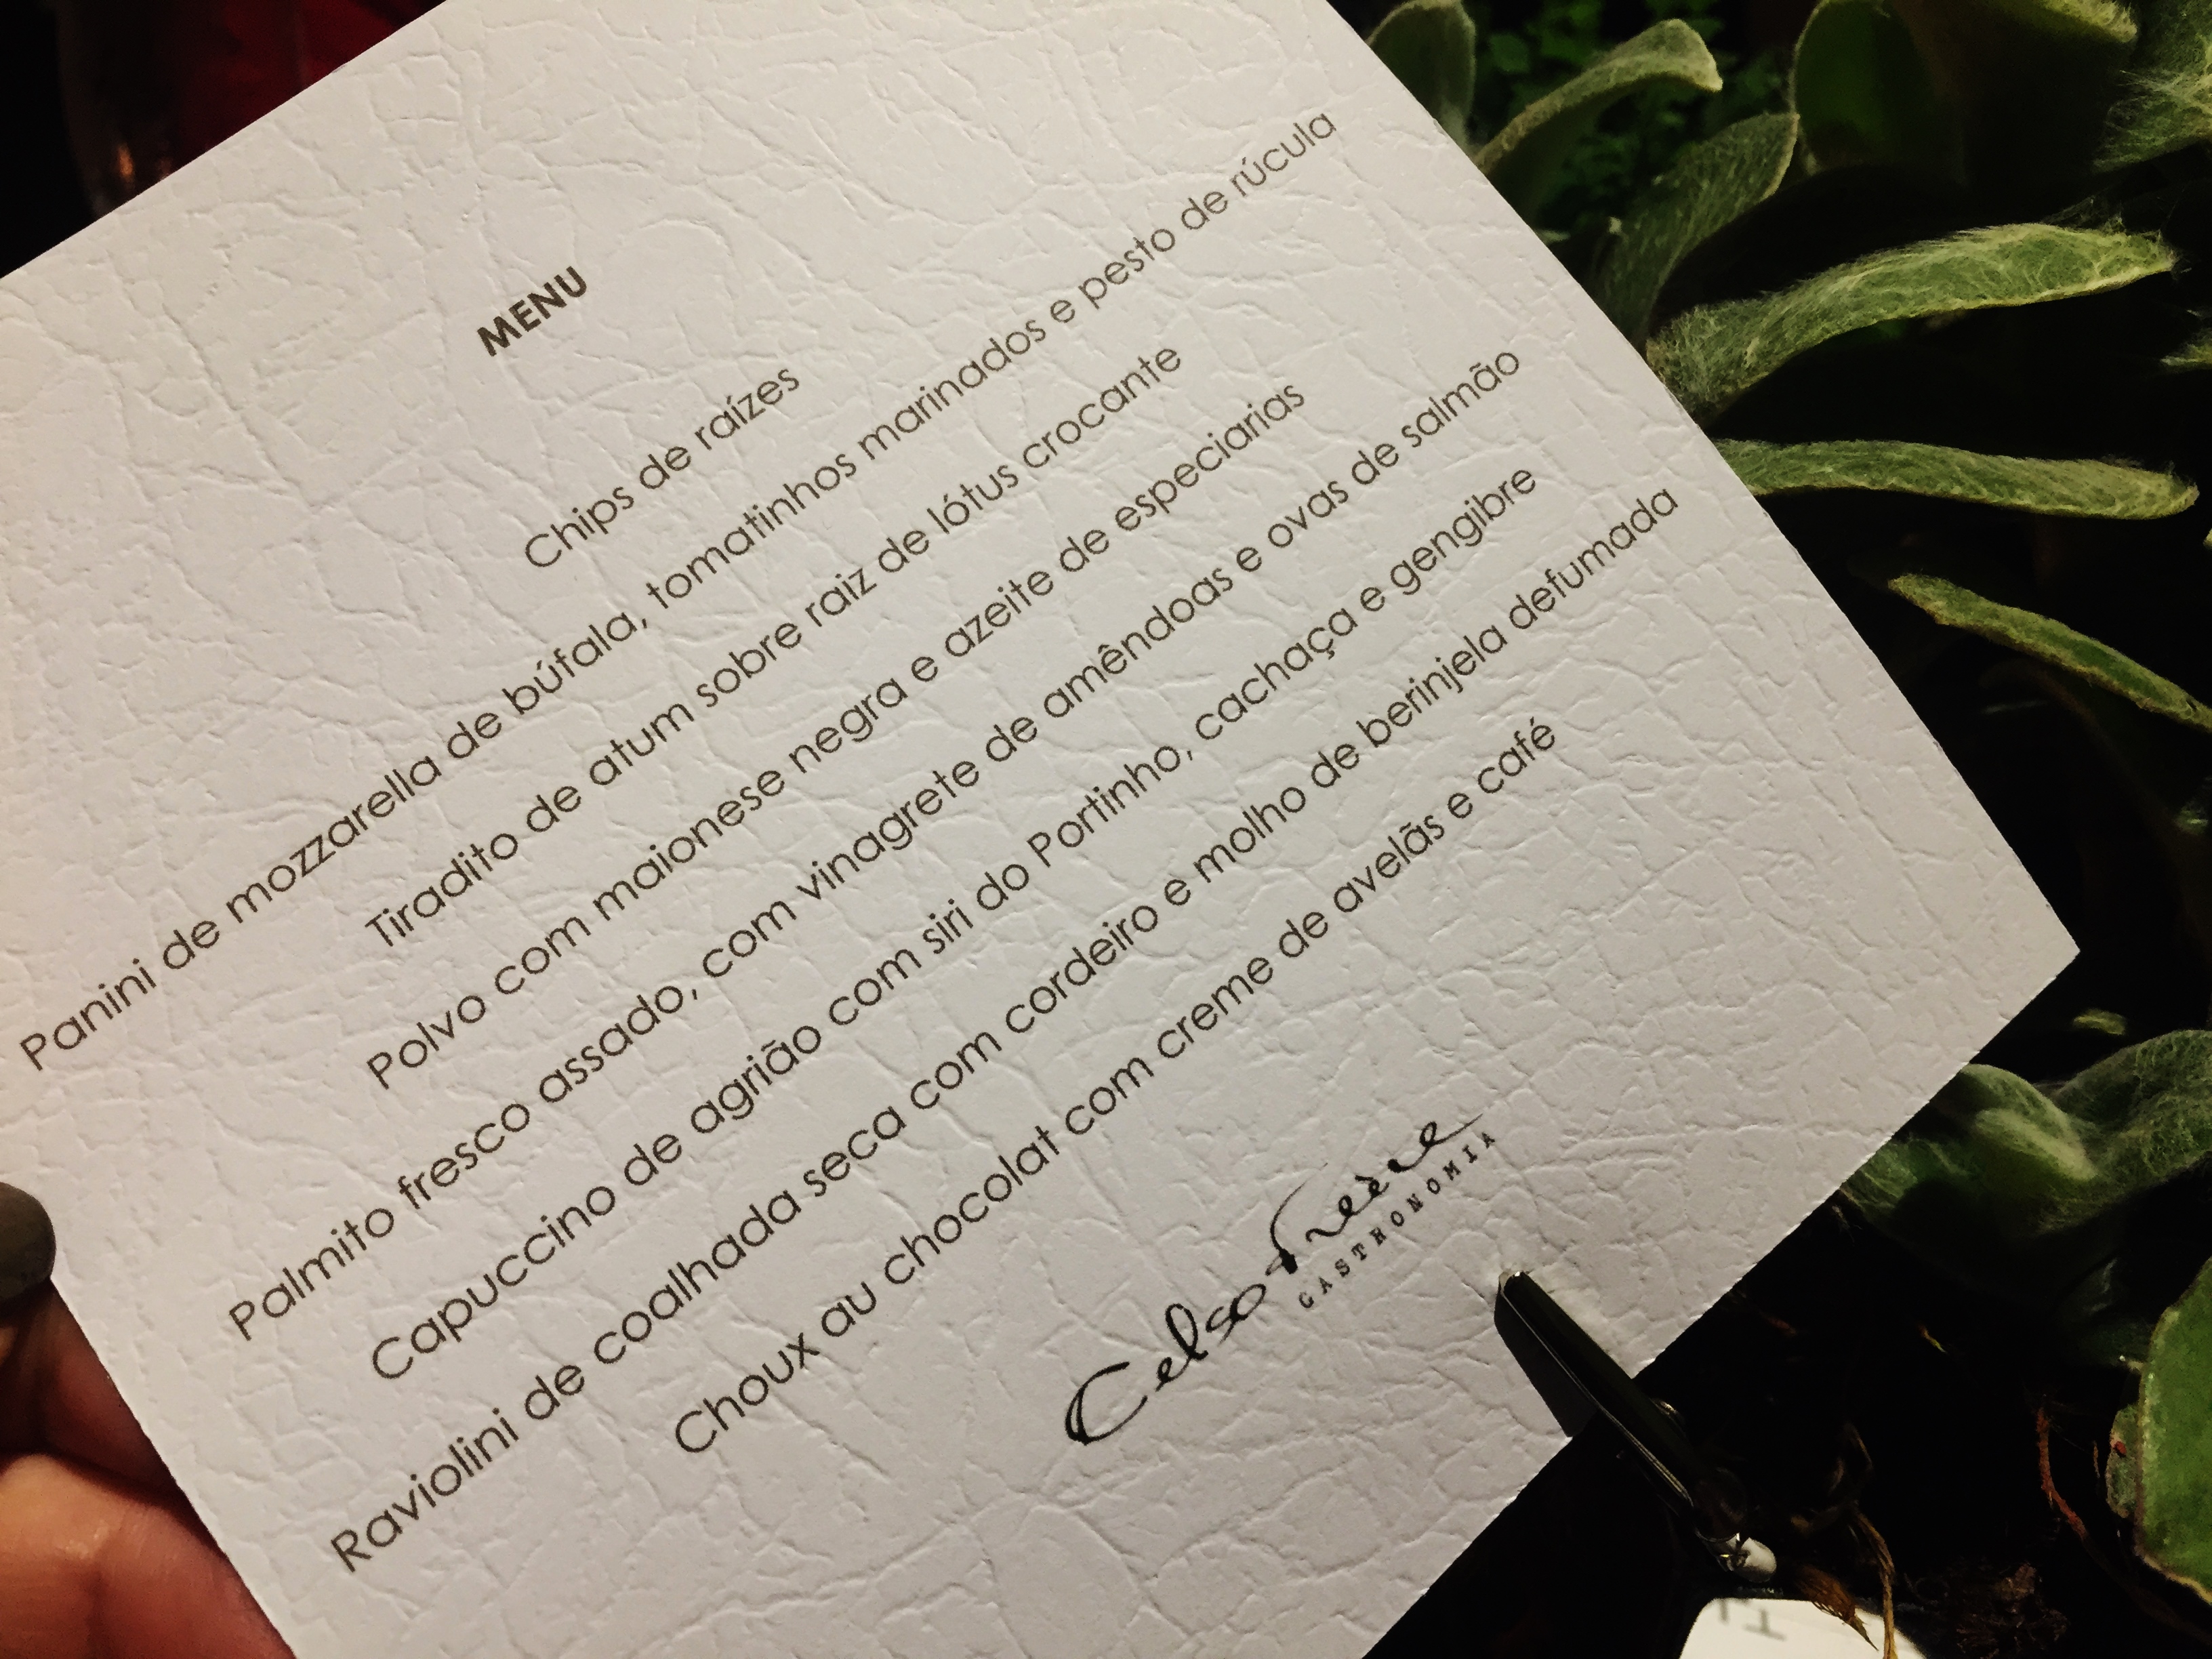 MENU
Chips de raízes
Panini de mozzarella de búfala, tomatinhos marinados e pesto de rúcula
Tiradito de atum sobre raiz de lótus crocante
Polvo com maionese negra e azeite de especiarias
Palmito fresco assado, com vinagrete de amêndoas e ovas de salmão
Capuccino de agrião com siri do Portinho, cachaça e gengibre
Raviolini de coalhada seca com cordeiro e molho de berinjela defumada
Choux au chocolat com creme de avelãs e café
Celso Freire
GASTRONOMIA